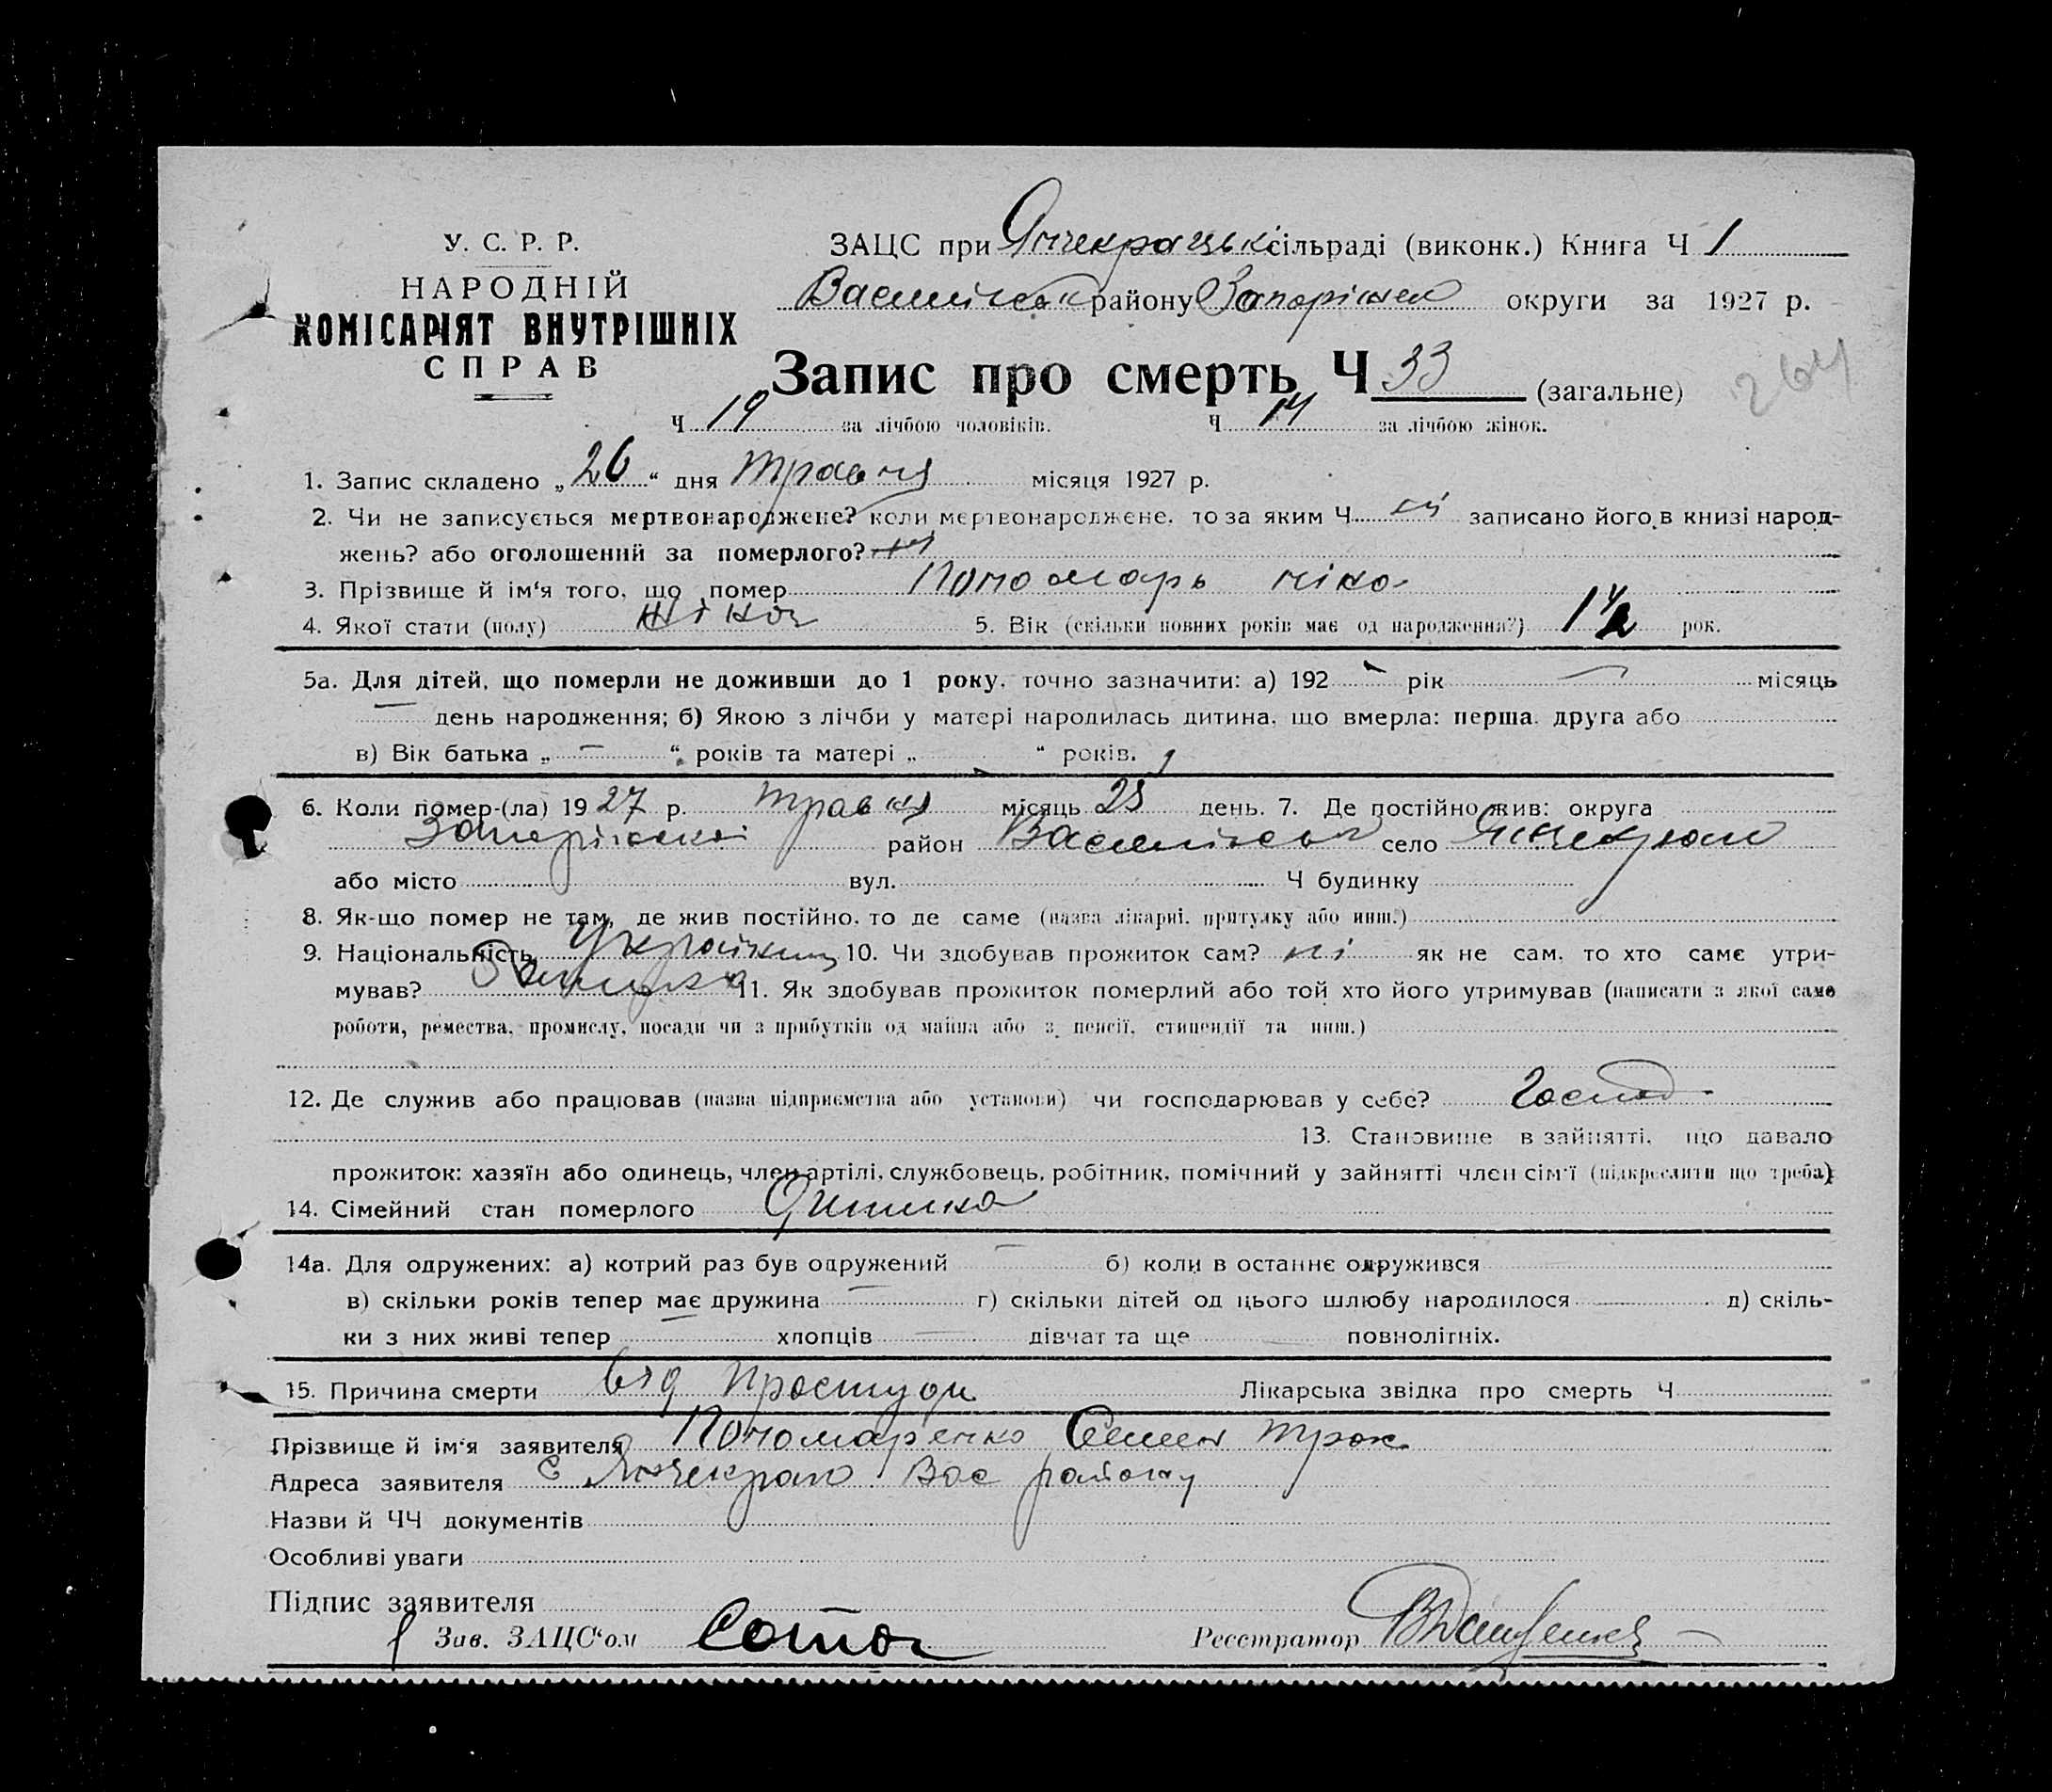 У. С. Р. Р.
НАРОДНІЙ
КОМІСАРІЯТ ВНУТРІШНІХ
СПРАВ
ЗАЦС при Янчекрацькі сільраді (виконк.) Книга Ч 1
Василівськ району Запоріжск округи за 1927 р.
Запис про смерть Ч 33 (загальне)
264
Ч 19 за лічбою чоловіків. Ч 14 за лічбою жінок.
1. Запис складено „ 26 “ дня травня місяця 1927 р.
2. Чи не записується мертвонароджене? коли мертвонароджене, то за яким Ч ні записано його в книзі народ-
жень? або оголошений за померлого? ні
3. Прізвище й ім‘я того, що помер Пономарь
4. Якої стати (полу) жіноч 5. Вік (скільки повних років має од народження?) 1 1/2 рок.
5а. Для дітей, що померли не доживши до 1 року, точно зазначити: а) 192 рік місяць
день народження; б) Якою з лічби у матері народилась дитина, що вмерла: перша, друга або
в) Вік батька „ – “ років та матері „ “ років.
6. Коли помер-(ла) 19 27 р. травня місяць 25 день. 7. Де постійно жив: округа
Запоріжскої район Василівськ село Янчекрак
або місто вул. Ч будинку
8. Як-що помер не там, де жив постійно, то де саме (назва лікарні, притулку або инш.)
9. Національність Україниц 10. Чи здобував прожиток сам? ні як не сам, то хто саме утри-
мував? 11. Як здобував прожиток померлий або той хто його утримував (написати з якої саме
роботи, ремества, промислу, посади чи з прибутків од майна або з пенсії, стипендії та инш.)
12. Де служив або працював (назва підприємства або установи) чи господарював у себе? Господ
13. Становище в зайнятті, що давало
прожиток: хазяїн або одинець, член артілі, службовець, робітник, помічний у зайнятті член сім‘ї (підкреслити що треба)
14. Сімейний стан померлого
14а. Для одружених: а) котрий раз був одружений – б) коли в останнє одружився
в) скільки років тепер має дружина – г) скільки дітей од цього шлюбу народилося – д) скіль-
ки з них живі тепер – хлопців – дівчат та ще – повнолітніх.
15. Причина смерти від простуди Лікарська звідка про смерть Ч
Прізвище й ім‘я заявителя Пономаренко Семен Трох
Адреса заявителя с Янчекрак Вас району
Назви й ЧЧ документів
Особливі уваги
Підпис заявителя
Зав. ЗАЦС‘ом Реєстратор